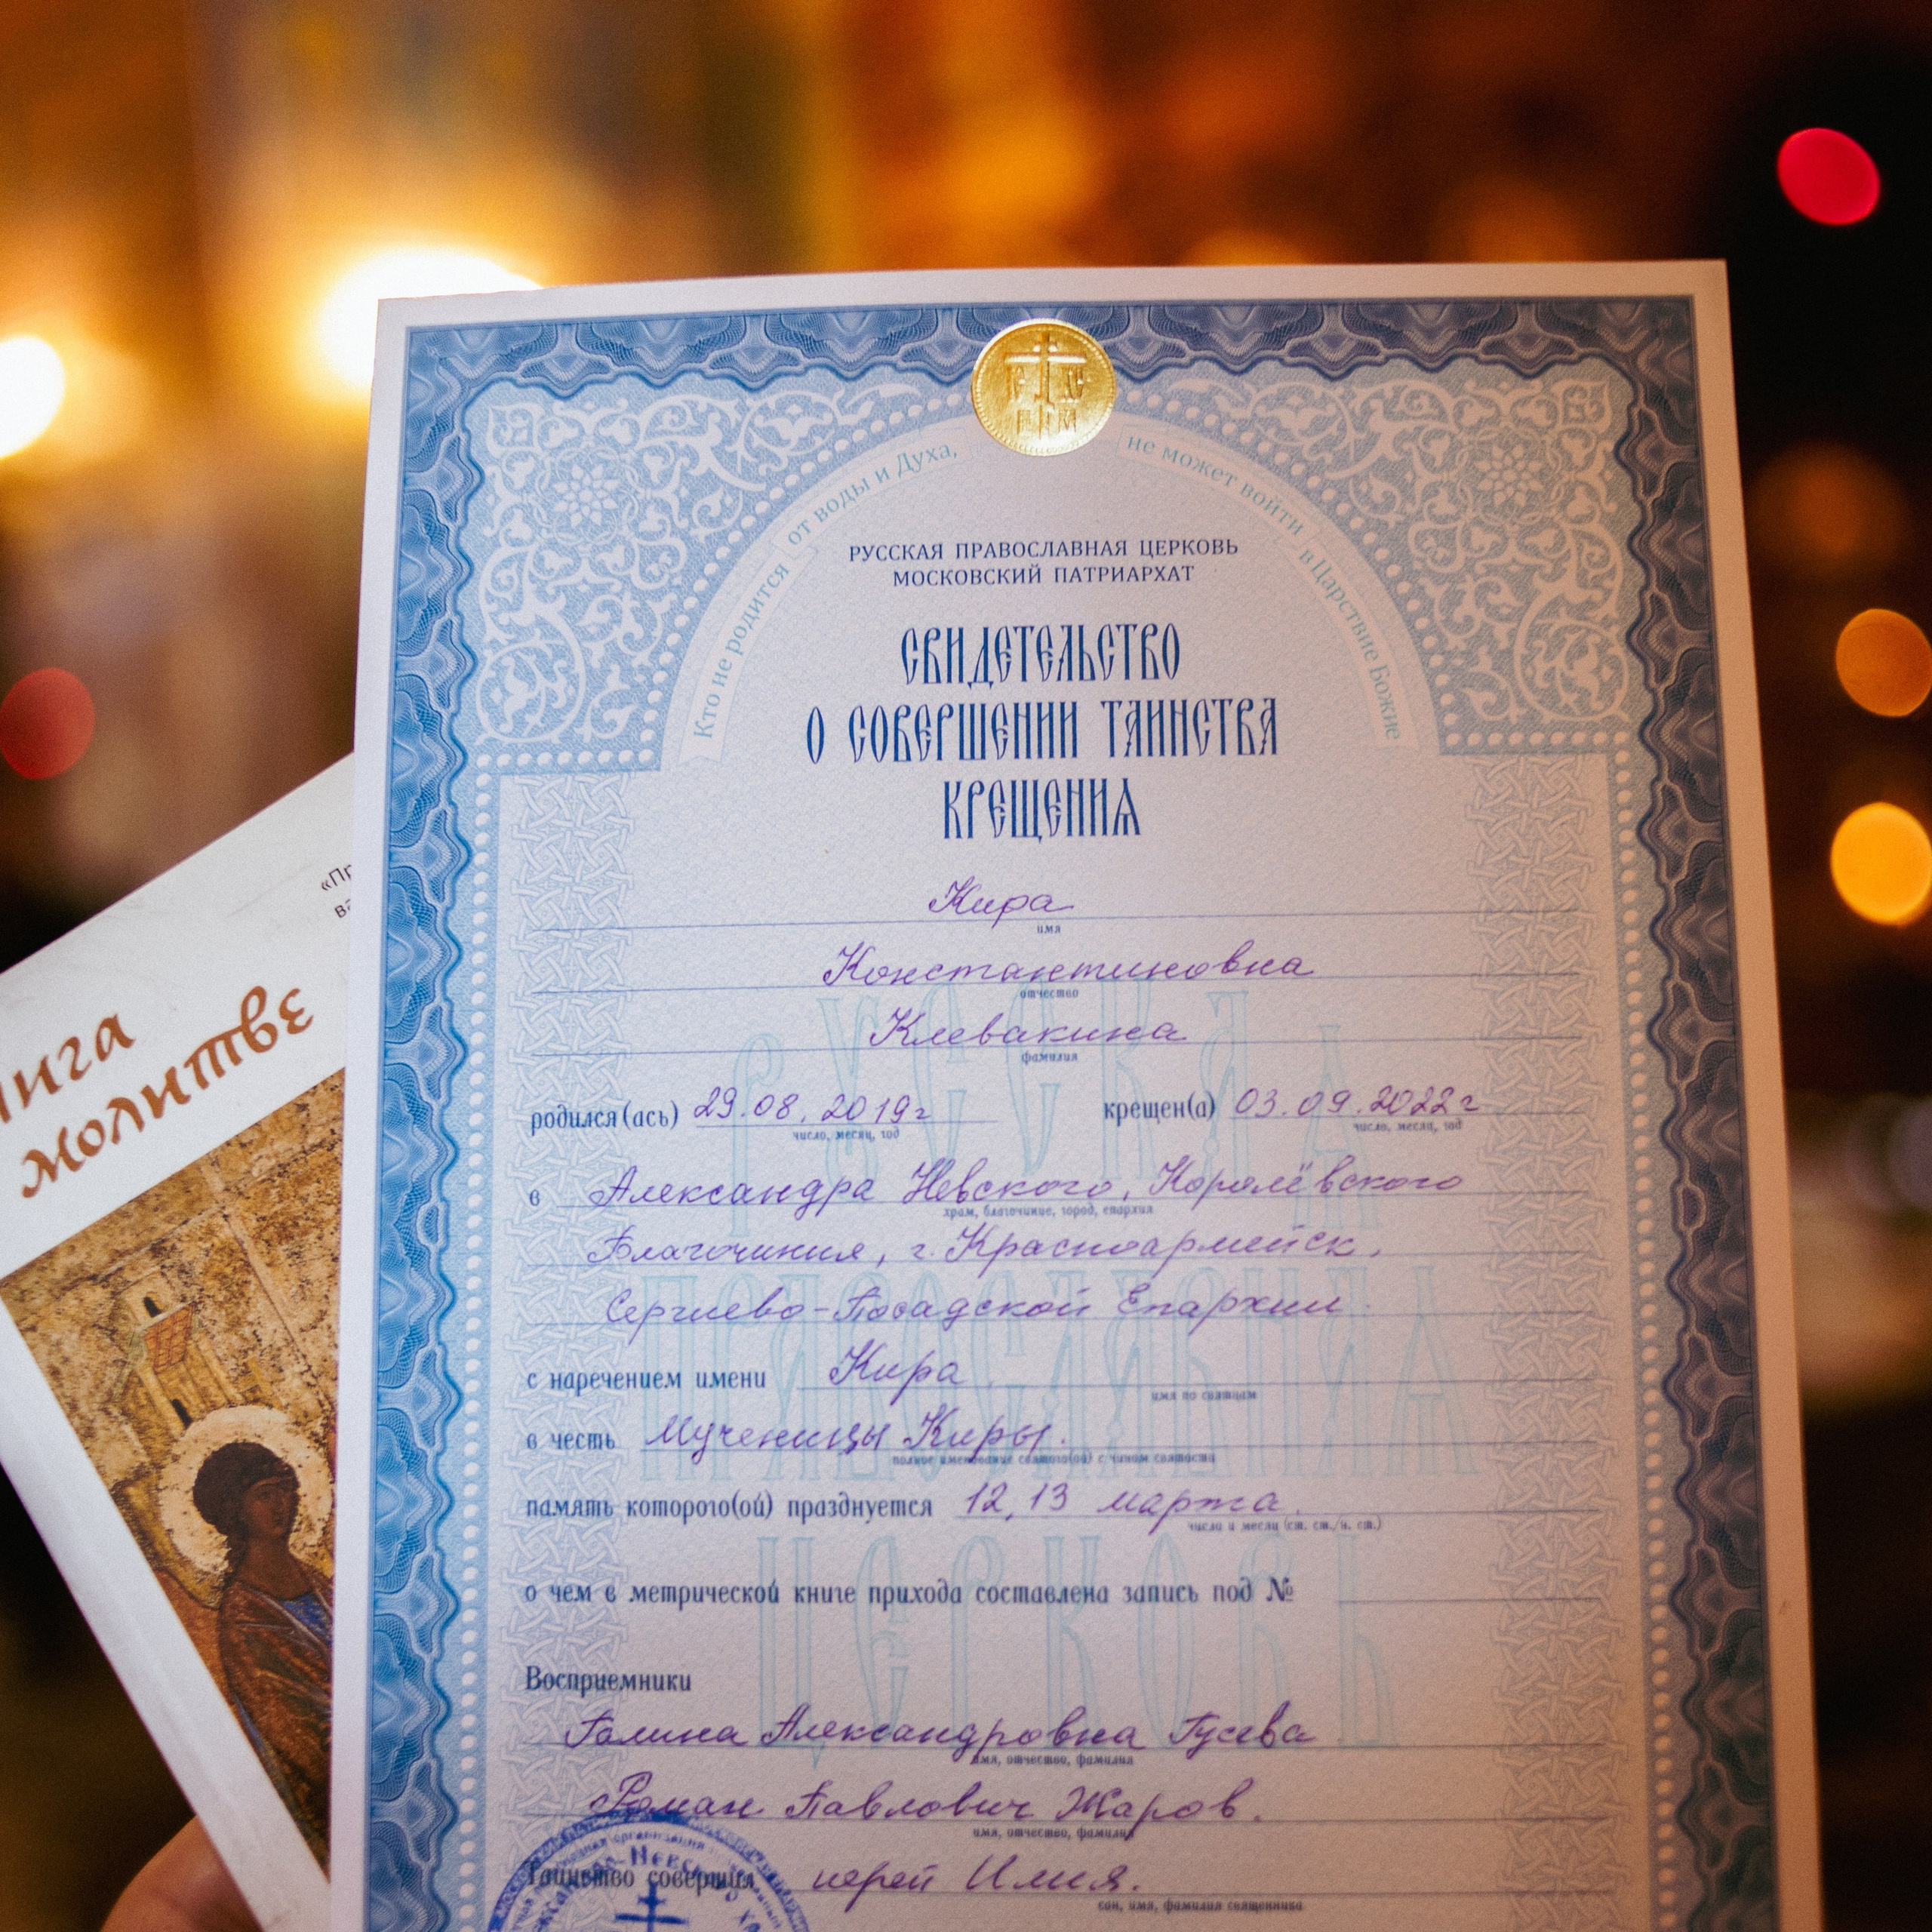 IC XC
НИ КА
Кто не родится от воды и Духа, не может войти в Царствие Божие
РУССКАЯ ПРАВОСЛАВНАЯ ЦЕРКОВЬ
МОСКОВСКИЙ ПАТРИАРХАТ
СВИДЕТЕЛЬСТВО
О СОВЕРШЕНИИ ТАИНСТВА
КРЕЩЕНИЯ
Кира
имя
Константиновна
отчество
Клевакина
фамилия
родился(ась) 29.08.2019г крещен(а) 03.09.2022г
число, месяц, год число, месяц, год
в Александра Невского, Королёвского
храм, благочиние, город, епархия
Благочиния, г. Красноармейск,
Сергиево-Посадской Епархии.
с наречением имени Кира
имя по святцам
в честь Мученицы Киры.
полное именование святого(ой) с чином святости
память которого(ой) празднуется 12, 13 марта.
число и месяц (ст. ст./н. ст.)
о чем в метрической книге прихода составлена запись под №
Восприемники
Галина Александровна Гусева
имя, отчество, фамилия
Роман Павлович Жаров.
имя, отчество, фамилия
Таинство совершил иерей Илия.
сан, имя, фамилия священника
РУССКАЯ
ПРАВОСЛАВНАЯ
ЦЕРКОВЬ
молитве